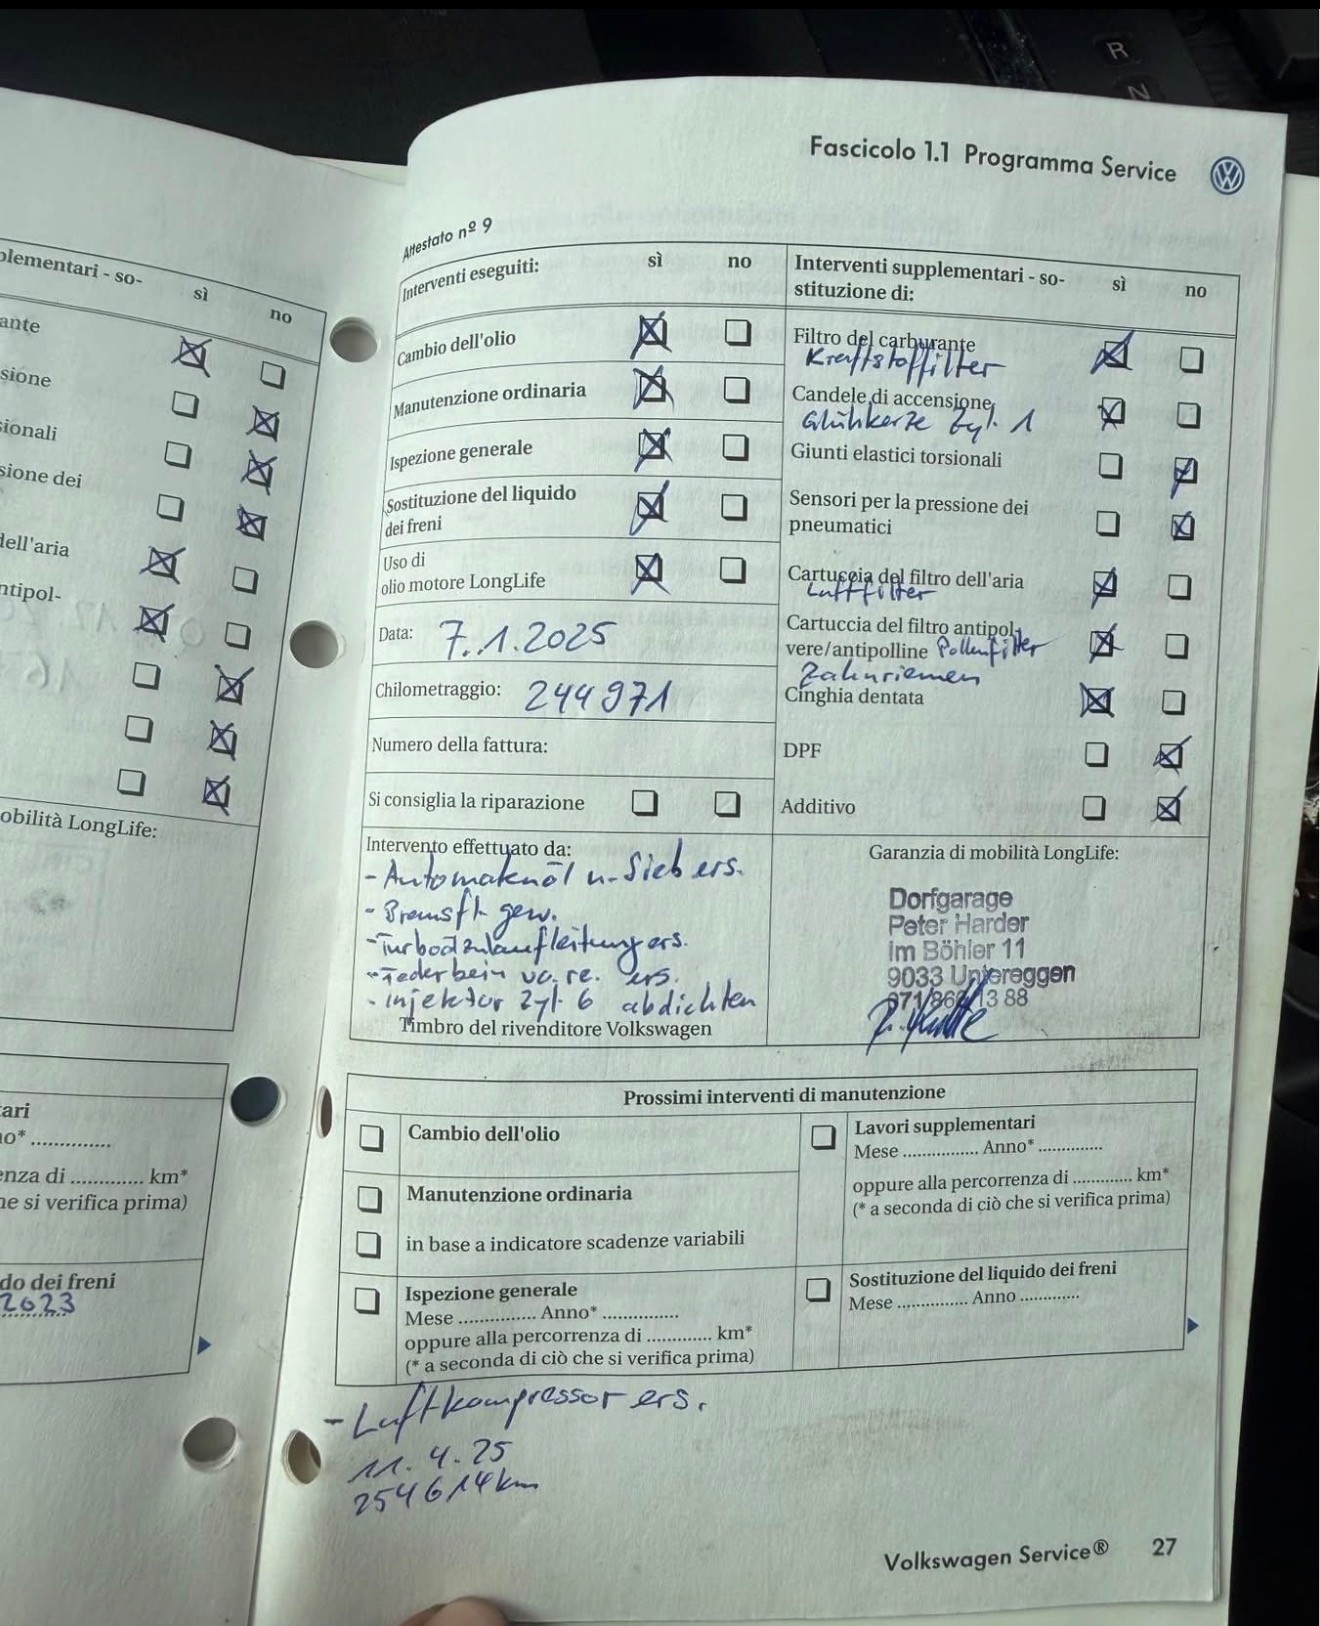 R
N
Fascicolo 1.1 Programma Service
plementari - so-
sì
no
ante
sione
sionali
sione dei
dell'aria
ntipol-
obilità LongLife:
tari
no*
enza di ............ km*
he si verifica prima)
do dei freni
2023
Attestato nº 9
Interventi eseguiti:
sì
no
Cambio dell'olio
Manutenzione ordinaria
Ispezione generale
Sostituzione del liquido
dei freni
Uso di
olio motore LongLife
Data: 7.1.2025
Chilometraggio: 244971
Numero della fattura:
Si consiglia la riparazione
Interventi supplementari - so-
stituzione di:
sì
no
Filtro del carburante
Kraftstoffilter
Candele di accensione
Glühkerze Zyl. 1
Giunti elastici torsionali
Sensori per la pressione dei
pneumatici
Cartuccia del filtro dell'aria
Luftfilter
Cartuccia del filtro antipol-
vere/antipolline Pollenfilter
Zahnriemen
Cinghia dentata
DPF
Additivo
Intervento effettuato da:
- Automatenöl u. Sieb ers.
- Bremsfl. gew.
- Turboölzulaufleitung ers.
- Federbein vo. re. ers.
- injektor Zyl. 6 abdichten
Timbro del rivenditore Volkswagen
Garanzia di mobilità LongLife:
Dorfgarage
Peter Harder
Im Böhler 11
9033 Untereggen
13 88
Prossimi interventi di manutenzione
Cambio dell'olio
Manutenzione ordinaria
in base a indicatore scadenze variabili
Ispezione generale
Mese ............... Anno* ...............
oppure alla percorrenza di ............ km*
(* a seconda di ciò che si verifica prima)
Lavori supplementari
Mese ............... Anno* ............
oppure alla percorrenza di ............ km*
(* a seconda di ciò che si verifica prima)
Sostituzione del liquido dei freni
Mese .............. Anno ............
- Luftkompressor ers.
11. 4. 25
254614 km
Volkswagen Service® 27